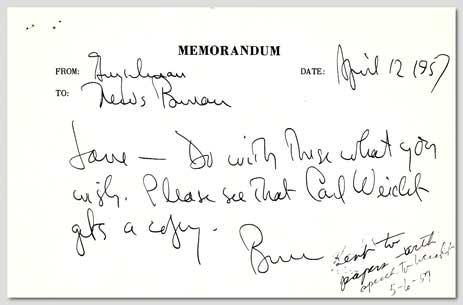 MEMORANDUM
FROM:
DATE: April 12 1957
TO: News Bureau
Jane — Do with these what you
wish. Please see that Carl Weidt
gets a copy.
sent to
papers with
speech to
5-6-57